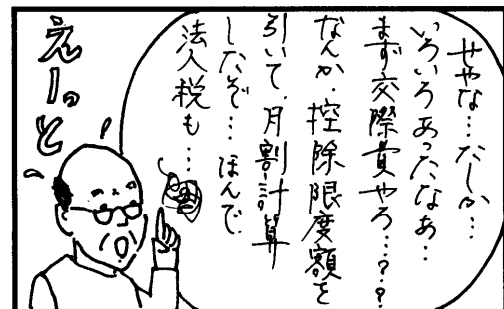 せやな…たしか…
いろいろあったなぁ…
まず交際費やろ…??
なんか、控除限度額を
引いて、月割計算
したぞ…ほんで
法人税も…
えーっと